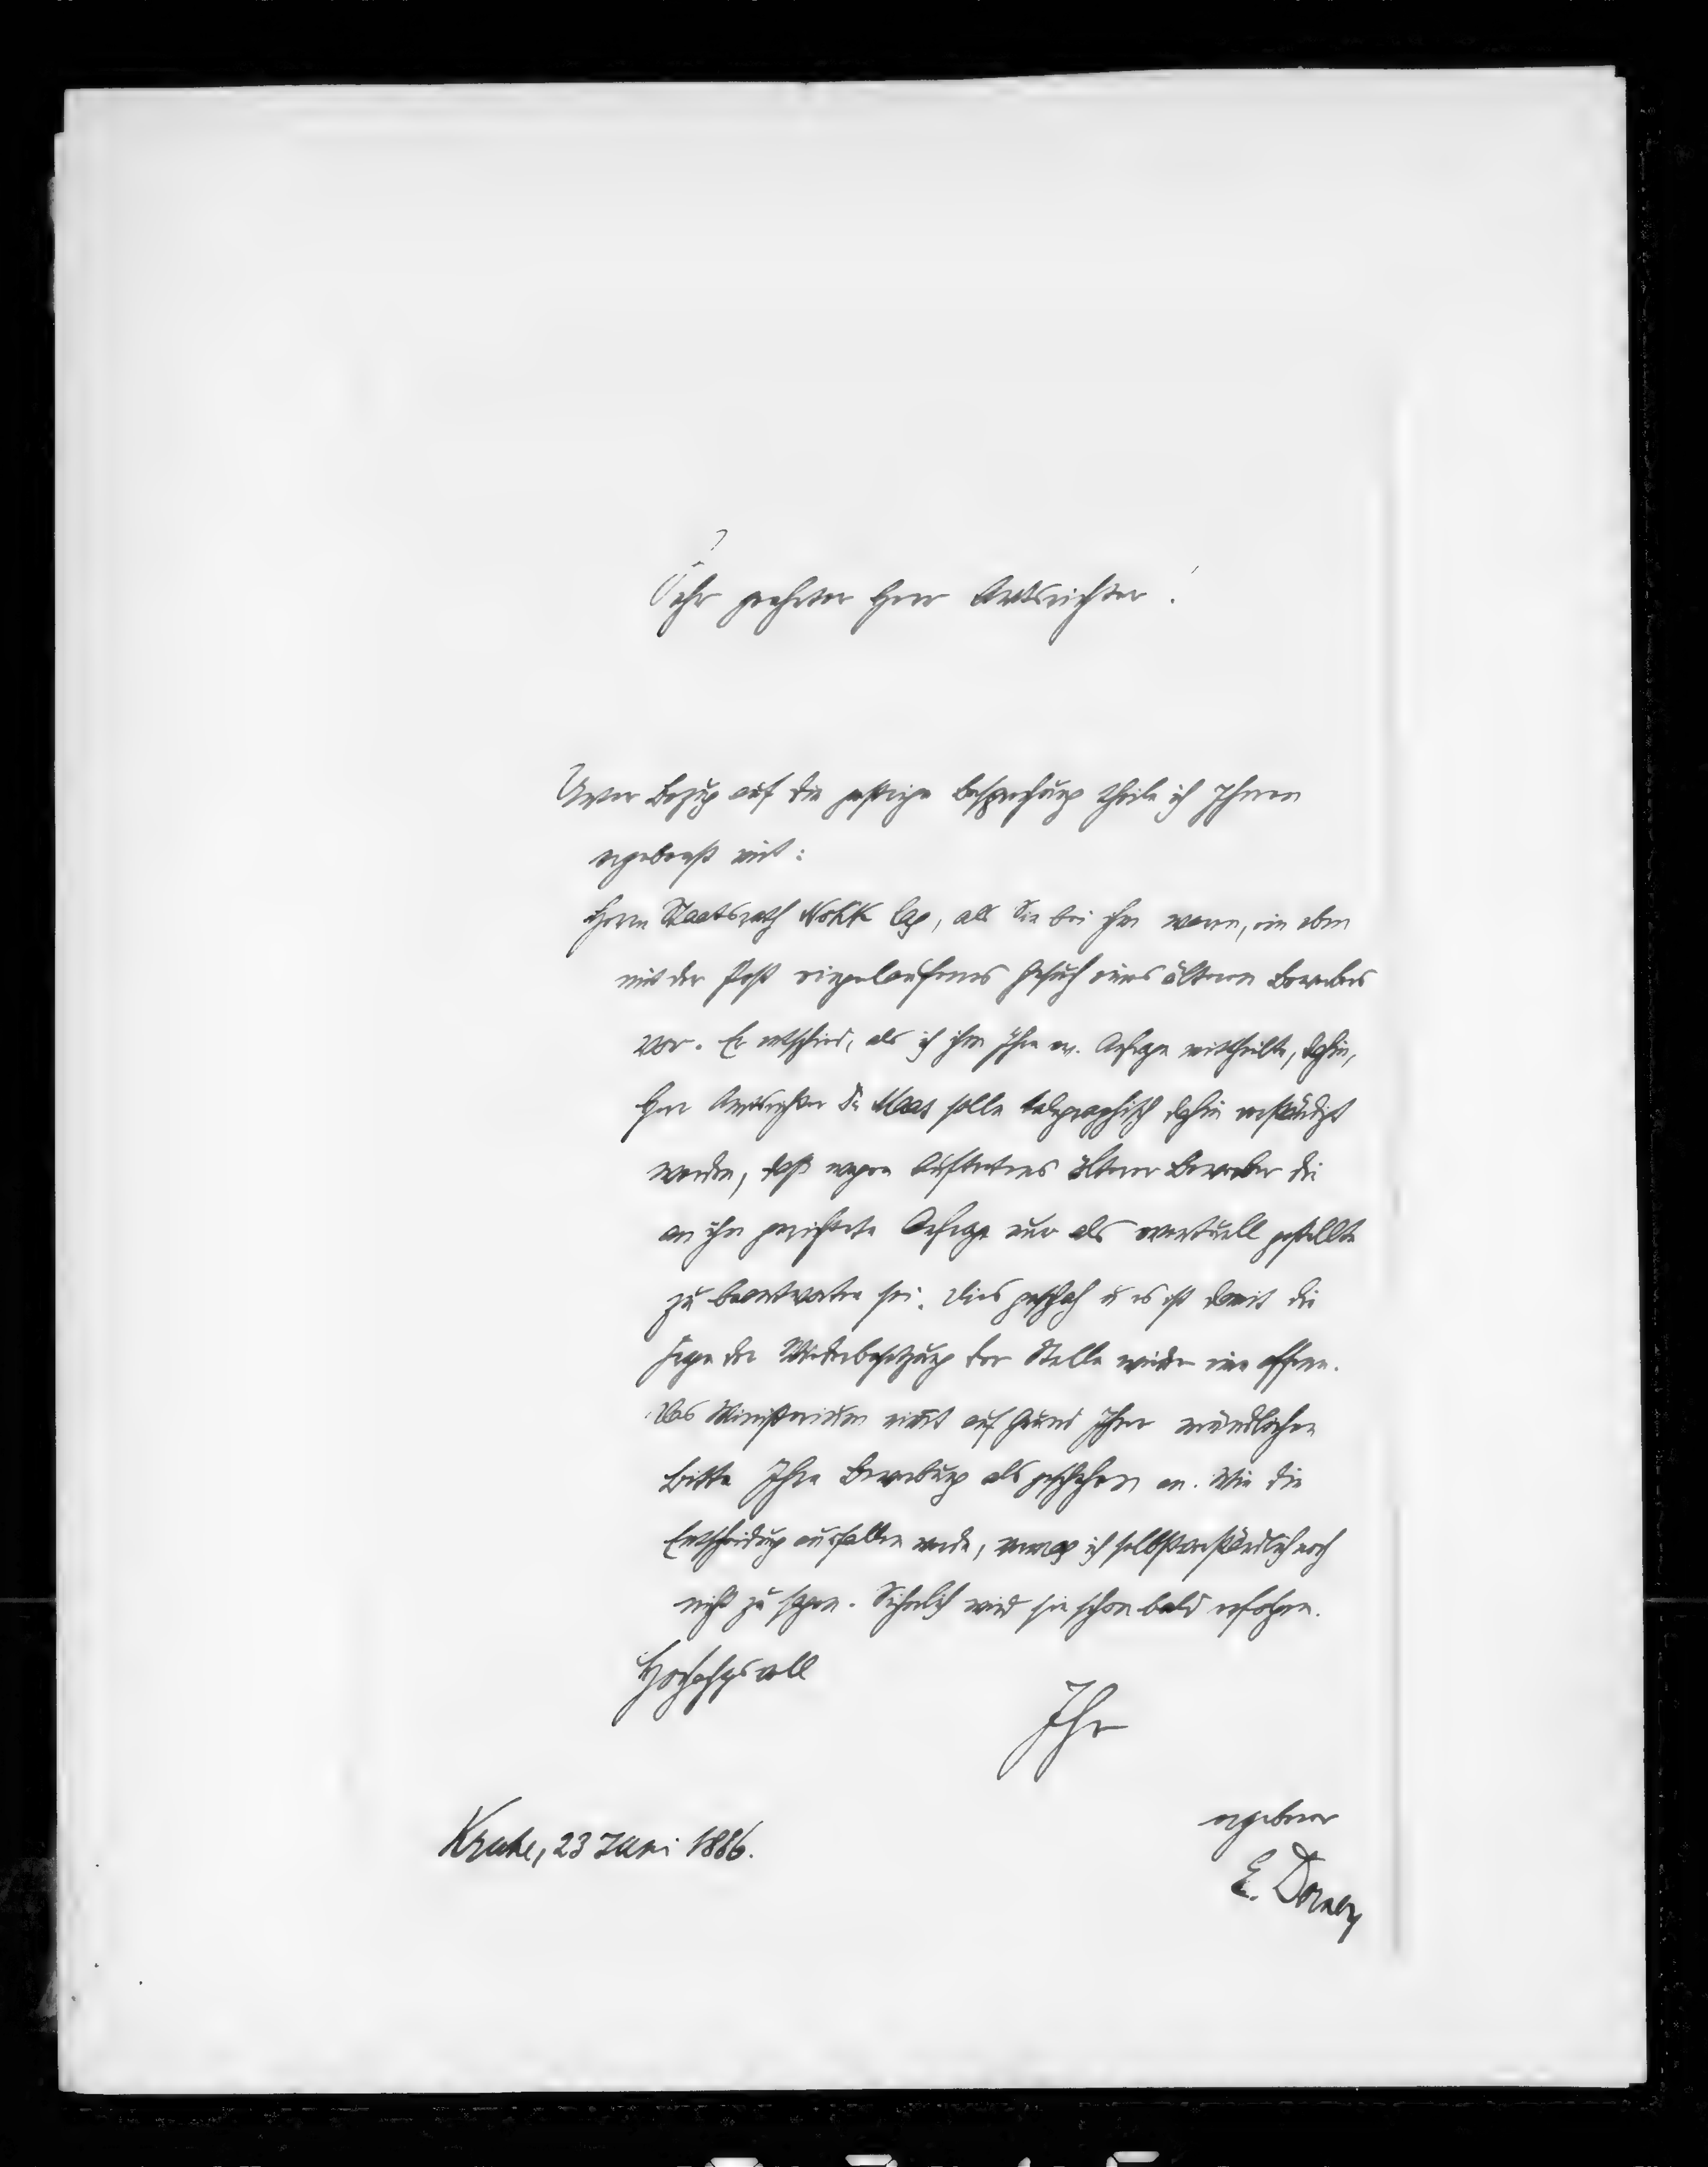 Sehr geehrter Herr Amtsrichter!
Unter Bezug auf die gestrige Besprechung theile ich Ihnen
ergebenst mit:
Herrn Staatsrath Nokk lag, als Sie bei ihm waren, ein eben
mit der Post eingelaufenes Gesuch eines älteren Bewerbers
vor. Er entschied, als ich ihm Ihre Anfrage mittheilte, dahin,
Herr Amtsrichter Dr Maas solle telegraphisch dahin verständigt
werden, daß wegen Auftretens älterer Bewerber die
an ihn gerichtete Anfrage nur als eventuell gestellte
zu beantworten sei. Dies geschah u es ist damit die
Frage der Wiederbesetzung der Stelle wieder eine offene.
Das Ministerium nimt auf Grund Ihrer mündlichen
Bitte Ihre Bewerbung als geschehen an. Wie die
Entscheidung ausfallen werde, vermag ich selbstverständlich noch
nicht zu sagen. Sicherlich wird sie schon bald erfolgen.
Hochachtungsvoll
Ihr
ergebener
E. Dorner
Kruhe, 23 Juni 1886.